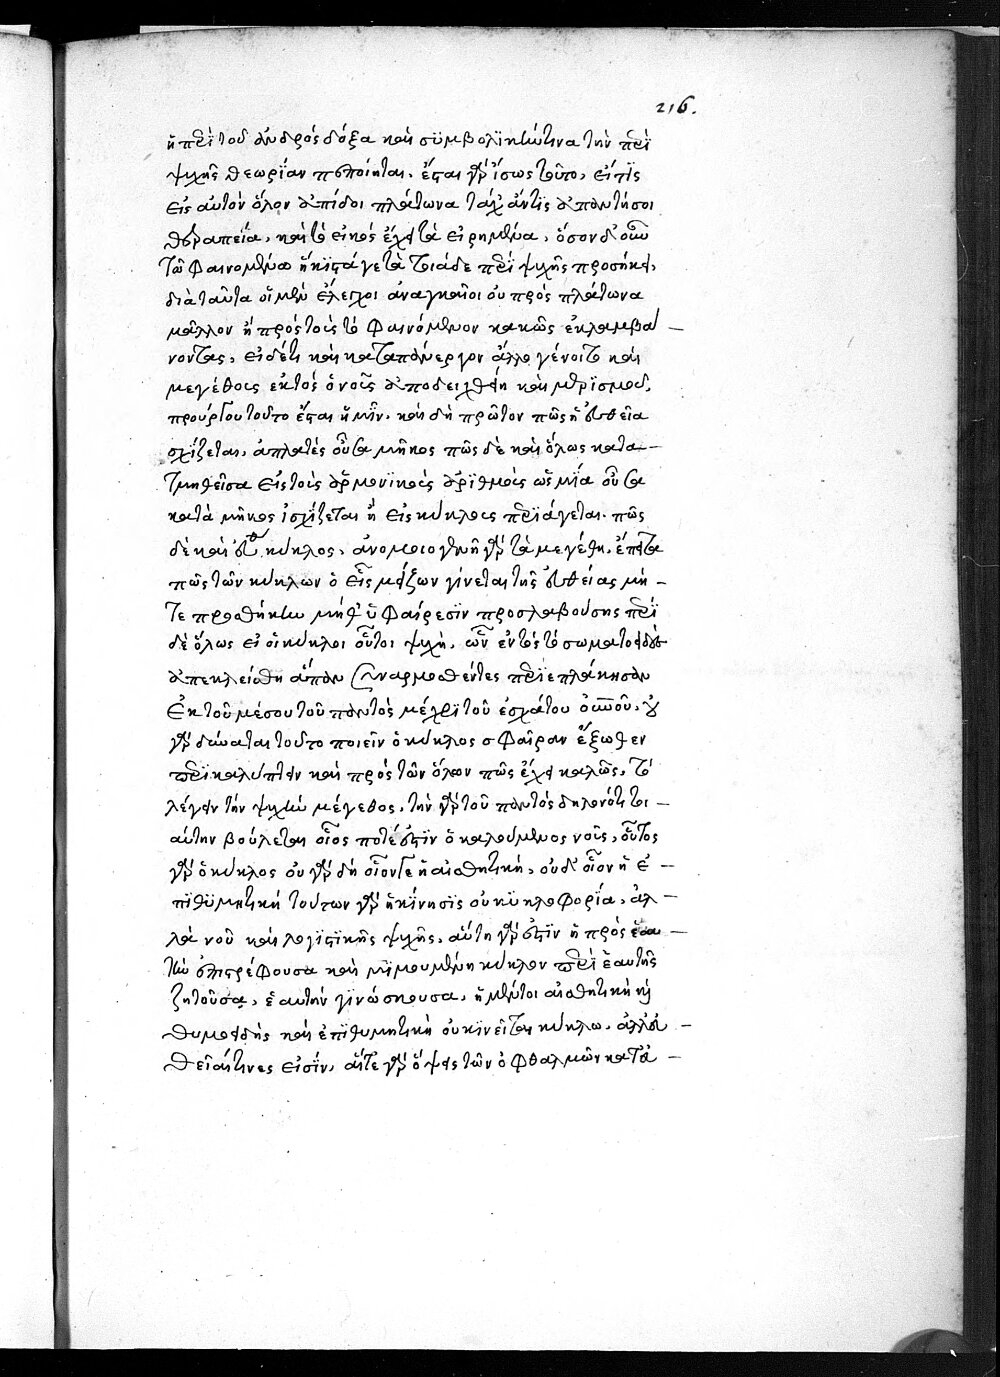 216.
ἢ περὶ τοῦ ἀνδρὸς δόξα καὶ συμβολικώτινα τὴν περὶ
ψυχῆς θεωρίαν πεποίηται. ἔσται γὰρ ἴσως τοῦτο, εἴ τις
εἰς αὐτὸν ὅλον ἀπίδοι πλάτωνα τάχ' ἄν τις ἀπαντήσοι
θεραπεία, καὶ τὸ εἰκὸς ἔχει τὰ εἰρημένα, ὅσον δ' οὖν
τῶ φαινομένω ἥκιστά γε τὰ τοιάδε περὶ ψυχῆς προσήκει,
διὰ ταῦτα οἱ μὲν ἔλεγχοι ἀναγκαῖοι οὐ πρὸς πλάτωνα
μᾶλλον ἢ πρὸς τοὺς τὸ φαινόμενον κακῶς ἐκλαμβά –
νοντας, εἰ δέ τι καὶ καταπάνεργον ἄλλο γένοιτο καὶ
μεγέθους ἐκτὸς ὁ νοῦς ἀποδειχθῆ καὶ μερισμοῦ,
προύργου τοῦτο ἔσται ἡμῖν. καὶ δὴ πρῶτον πῶς ἡ εὐθεῖα
σχίζεται, ἀπλατὲς οὖσα μῆκος πῶς δὲ καὶ ὅλως κατα –
τμηθεῖσα εἰς τοὺς ἁρμονικοὺς ἀριθμοὺς ὡς μία οὖσα
κατὰ μῆκος ἰσχίζεται ἢ εἰς κύκλους περιάγεται. πῶς
δὲ καὶ κύκλος, ἀνομοιογενῆ γὰρ τὰ μεγέθη, ἔπειτα
πῶς τῶν κύκλων ὁ εἷς μείζων γίνεται τῆς εὐθείας μή –
τε προσθήκην μήθ' ὑφαίρεσιν προσλαβούσης περὶ
δὲ ὅλως εἰ οἱ κύκλοι οὗτοι ψυχή, ὧν ἐντὸς τὸ σωματοειδὲς
ἀπεκλείσθη ἅπαν συναρμοσθέντες περιεπλάκησαν
ἐκ τοῦ μέσου τοῦ παντὸς μέχρι τοῦ ἐσχάτου οὐρανοῦ. οὐ
γὰρ δύναται τοῦτο ποιεῖν ὁ κύκλος σφαῖραν ἔξωθεν
περικαλύπτειν καὶ πρὸς τῶν ὅλων πῶς ἔχει καλῶς, τὸ
λέγειν τὴν ψυχὴν μέγεθος, τὴν γὰρ τοῦ παντὸς δηλονότι τοι –
αύτην βούλεται οἷος ποτέ ἐστιν ὁ καλούμενος νοῦς, οὗτος
γὰρ ὁ κύκλος οὐ γὰρ δὴ οἷόν τε ἡ αἰσθητική, οὐδ' οἷον ἡ ἐ –
πιθυμητική τούτων γὰρ ἡ κίνησις οὐ κυκλοφορία, ἀλ –
λὰ νοῦ καὶ λογιστικῆς ψυχῆς, αὕτη γάρ ἐστιν ἡ πρὸς ἑαυ –
τὴν ἐπιστρέφουσα καὶ μιμουμένη κύκλον περὶ ἑαυτῆς
ζητοῦσα, ἑαυτὴν γινώσκουσα, ἡ μέντοι αἰσθητικὴ ἢ
θυμοειδὴς καὶ ἐπιθυμητικὴ οὐ κινεῖται κύκλω, ἀλλ' εὐ –
θεῖαί τινες εἰσίν, αἵ τε γὰρ ὄψεις τῶν ὀφθαλμῶν κατ' εὐ –